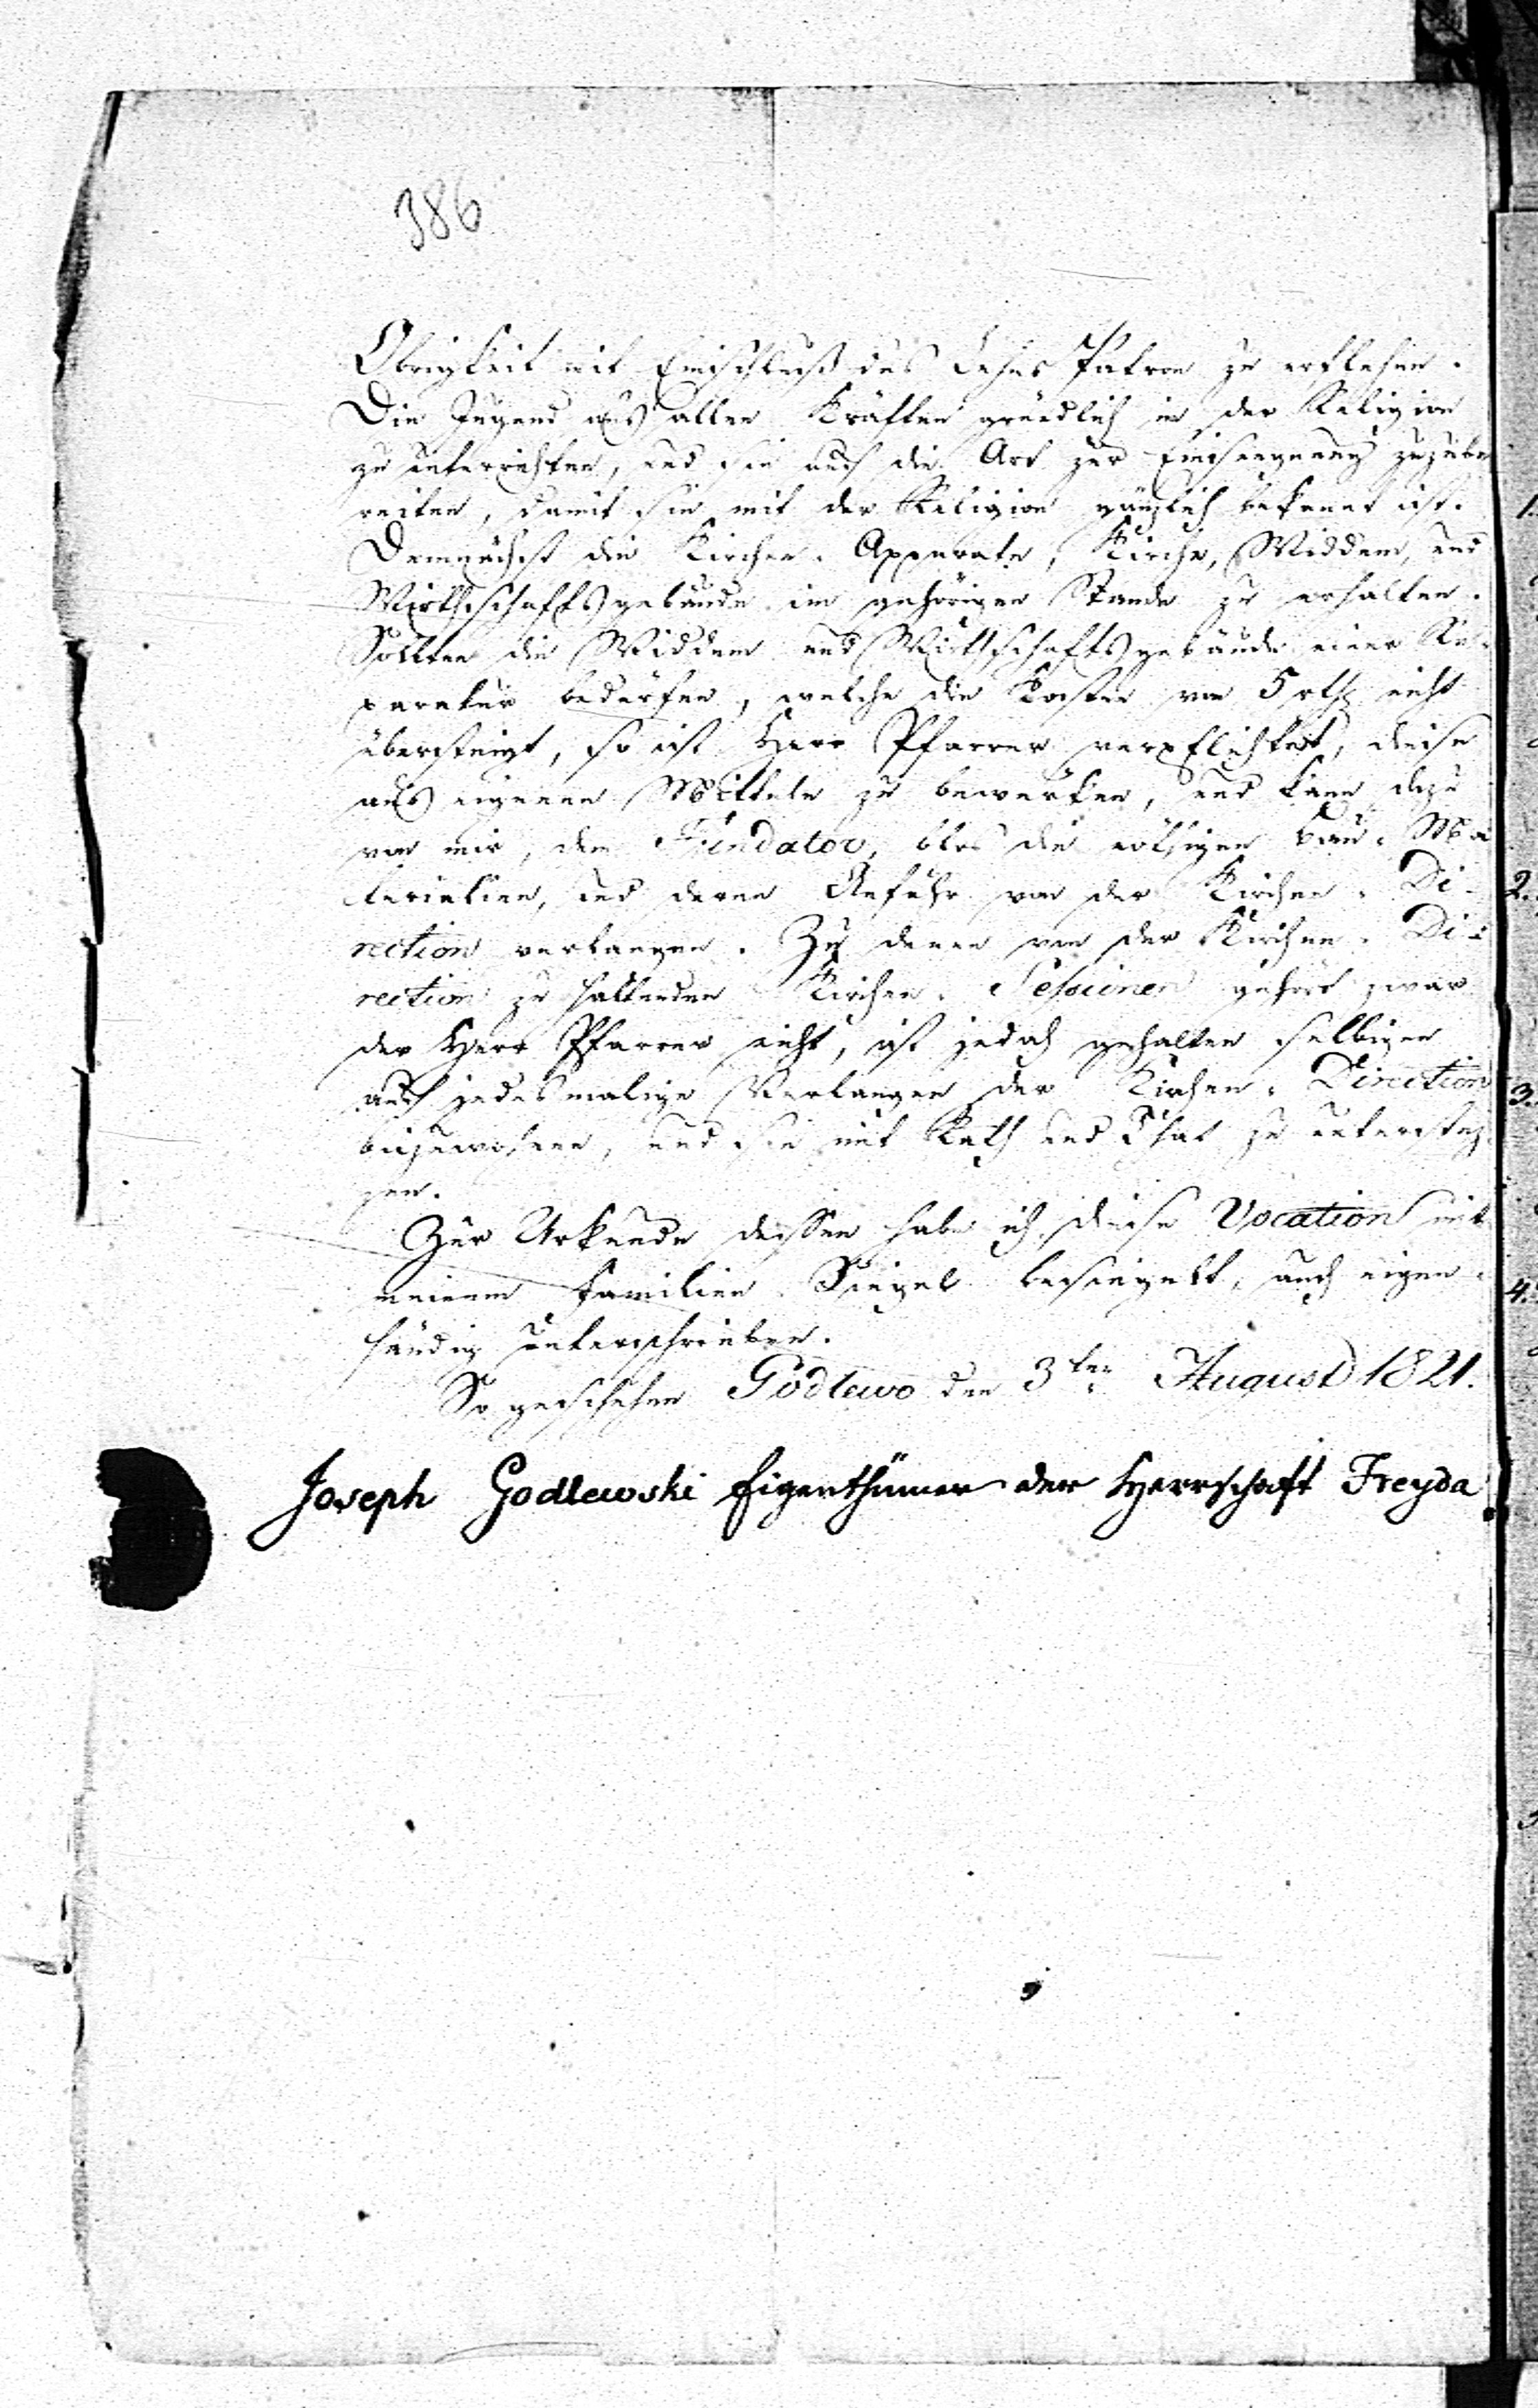 386
Obrigkeit mit Einschluß des Lehns Patron zu erflehen.
Die Jugend aus allen Kräften gründlich in der Religion
zu unterrichten, und sie auf die Art zur Einsegnung zuzube
reiten, damit sie mit der Religion gänzlich bekannt ist.
Demnächst die Kirchen-Apparate, Kirche, Widdem, und
Wirthschaftsgebäude im gehörigen Stande zu erhalten.
Sollten die Widdem und Wirthschaftsgebäude einer Re-
paratur bedürfen, welche die Kosten von 5 rth nicht
übersteigt, so ist Herr Pfarrer verpflichtet, diese
aus eigenen Mitteln zu bewerken, und kann dazu
von mir, dem Fundator, blos die nöthigen Bau-Ma
terialien, und deren Anfuhr von der Kirchen-Di-
rection verlangen. Zu denen von der Kirchen-Di-
rection zu haltenden Kirchen-Sessionen gehört zwar
der Herr Pfarrer nicht, ist jedoch gehalten selbigen
auf jedesmalige Verlangen der Kirchen-Direction
beizuwohnen, und sie mit Rath und That zu unterstüz
zen.
Zur Urkunde dessen habe ich diese Vocation mit
meinem Familien Siegel besiegelt, auch eigen-
händig unterschrieben.
So geschehen Godlewo den 3ten August 1821.
Joseph Godlewski Eigenthümer der Herrschaft Freyda
1.
2.
3.
4.